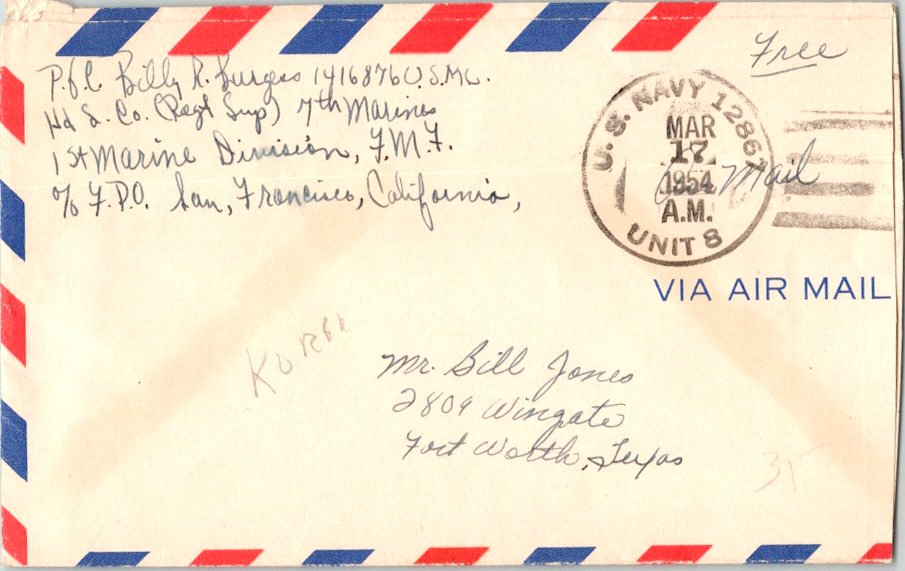 Free
P.f.c. Billy R. Burgess 1416876 U.S.M.C.
Hd. S. Co. (Regt Sup) 7th Marines
1st Marine Division, F.M.F.
℅ F.P.O. San, Francisco, California,
U. S. NAVY 12861
MAR
17
1954
A.M.
UNIT 8
Air Mail
VIA AIR MAIL
Korea
Mr. Bill Jones
2809 Wingate
Fort Worth, Texas
35